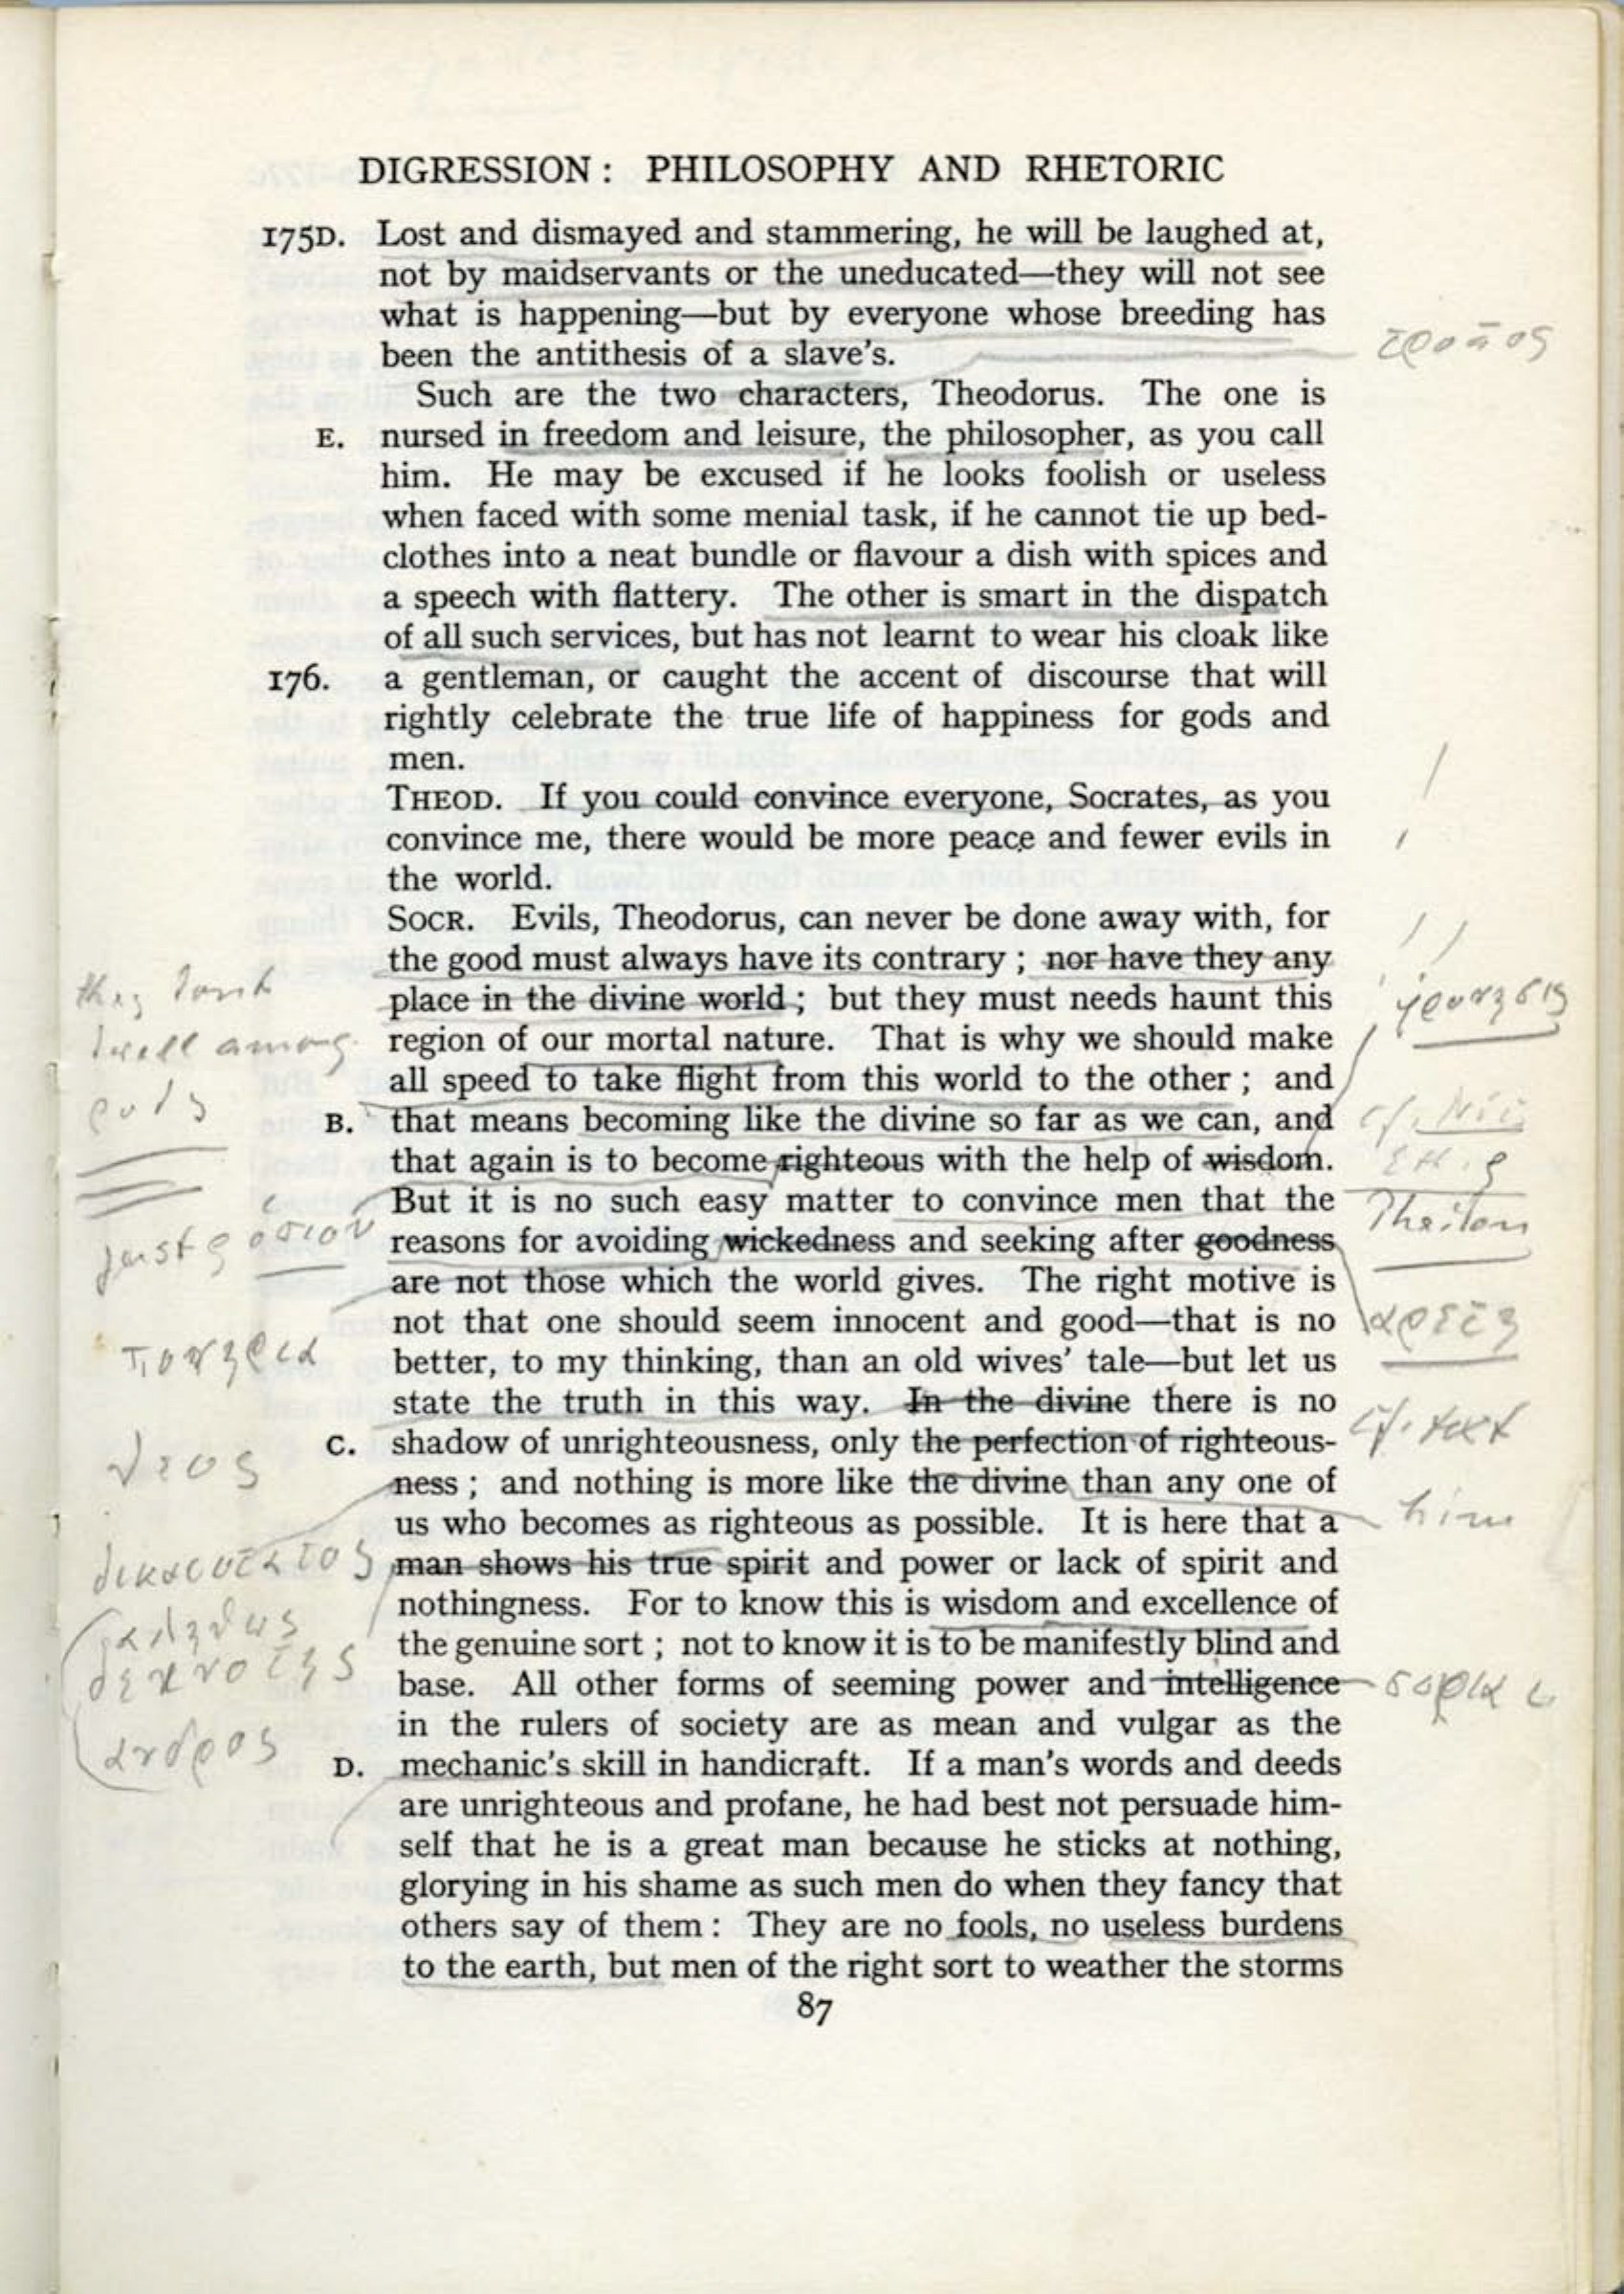 DIGRESSION : PHILOSOPHY AND RHETORIC
175D. Lost and dismayed and stammering, he will be laughed at,
not by maidservants or the uneducated—they will not see
what is happening—but by everyone whose breeding has
been the antithesis of a slave's.
τρόπος
Such are the two characters, Theodorus. The one is
E. nursed in freedom and leisure, the philosopher, as you call
him. He may be excused if he looks foolish or useless
when faced with some menial task, if he cannot tie up bed-
clothes into a neat bundle or flavour a dish with spices and
a speech with flattery. The other is smart in the dispatch
of all such services, but has not learnt to wear his cloak like
176. a gentleman, or caught the accent of discourse that will
rightly celebrate the true life of happiness for gods and
men.
THEOD. If you could convince everyone, Socrates, as you
convince me, there would be more peace and fewer evils in
the world.
SOCR. Evils, Theodorus, can never be done away with, for
the good must always have its contrary ; nor have they any
place in the divine world ; but they must needs haunt this
region of our mortal nature. That is why we should make
all speed to take flight from this world to the other ; and
B. that means becoming like the divine so far as we can, and
that again is to become righteous with the help of wisdom.
But it is no such easy matter to convince men that the
reasons for avoiding wickedness and seeking after goodness
are not those which the world gives. The right motive is
not that one should seem innocent and good—that is no
better, to my thinking, than an old wives' tale—but let us
state the truth in this way. In the divine there is no
C. shadow of unrighteousness, only the perfection of righteous-
ness ; and nothing is more like the divine than any one of
us who becomes as righteous as possible. It is here that a
man shows his true spirit and power or lack of spirit and
nothingness. For to know this is wisdom and excellence of
the genuine sort ; not to know it is to be manifestly blind and
base. All other forms of seeming power and intelligence
in the rulers of society are as mean and vulgar as the
D. mechanic's skill in handicraft. If a man's words and deeds
are unrighteous and profane, he had best not persuade him-
self that he is a great man because he sticks at nothing,
glorying in his shame as such men do when they fancy that
others say of them : They are no fools, no useless burdens
to the earth, but men of the right sort to weather the storms
87
they
dwell among
gods
just
πονηρια
θεος
δικαιοτατος
αληθως
δεινοτης
ανδρος
φρονησις
cf. Nic.
Eth.
αρετη
cf. text
him
σοφια